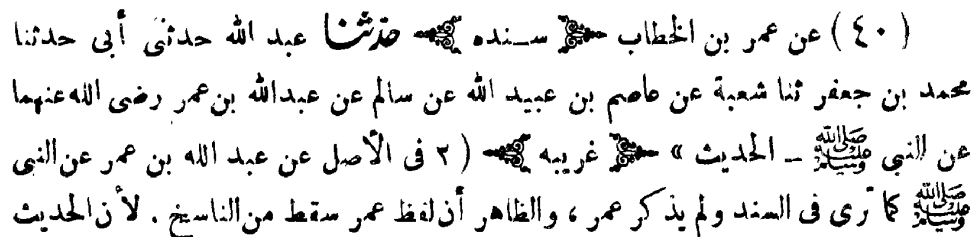 ( ٤٠ ) عن عمر بن الخطاب ﴿ ســنده ﴾ حدّثنا عبد الله حدثنى أبى حدثنا
محمد بن جعفر ثنا شعبة عن عاصم بن عبيد الله عن سالم عن عبدالله بن عمر رضى الله عنهما
عن النبي ﷺ ـ الحديث » ﴿ غريبه ﴾ ( ٢ فى الأصل عن عبد الله بن عمر عن النبى
ﷺ كما ترى فى السند ولم يذكر عمر ، والظاهر أن لفظ عمر سقط من الناسخ . لأن الحديث